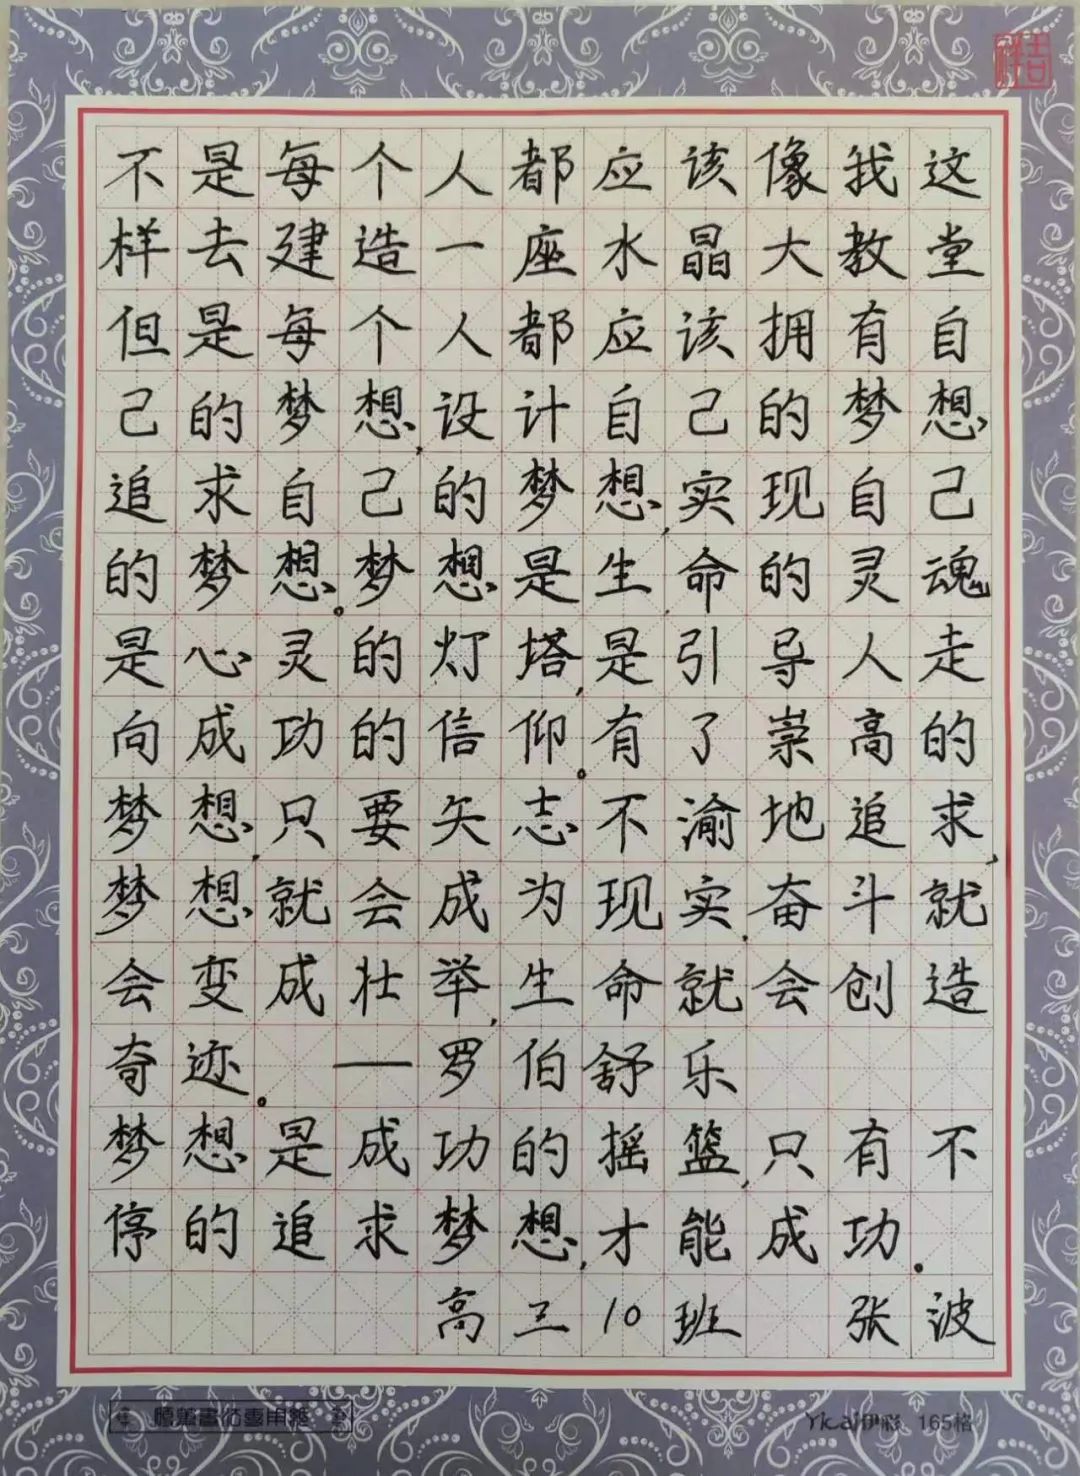 吉祥
不是每个人都应该像我这
样去建造一座水晶大教堂
但是每个人都应该拥有自
己的梦想,设计自己的梦想
追求自己的梦想,实现自己
的梦想。梦想是生命的灵魂
是心灵的灯塔,是引导人走
向成功的信仰。有了崇高的
梦想,只要矢志不渝地追求,
梦想就会成为现实,奋斗就
会变成壮举,生命就会创造
奇迹。 —罗伯舒乐
梦想是成功的摇篮,只有不
停的追求梦想,才能成功.
高三10班 张波
Ykai伊彩 165格